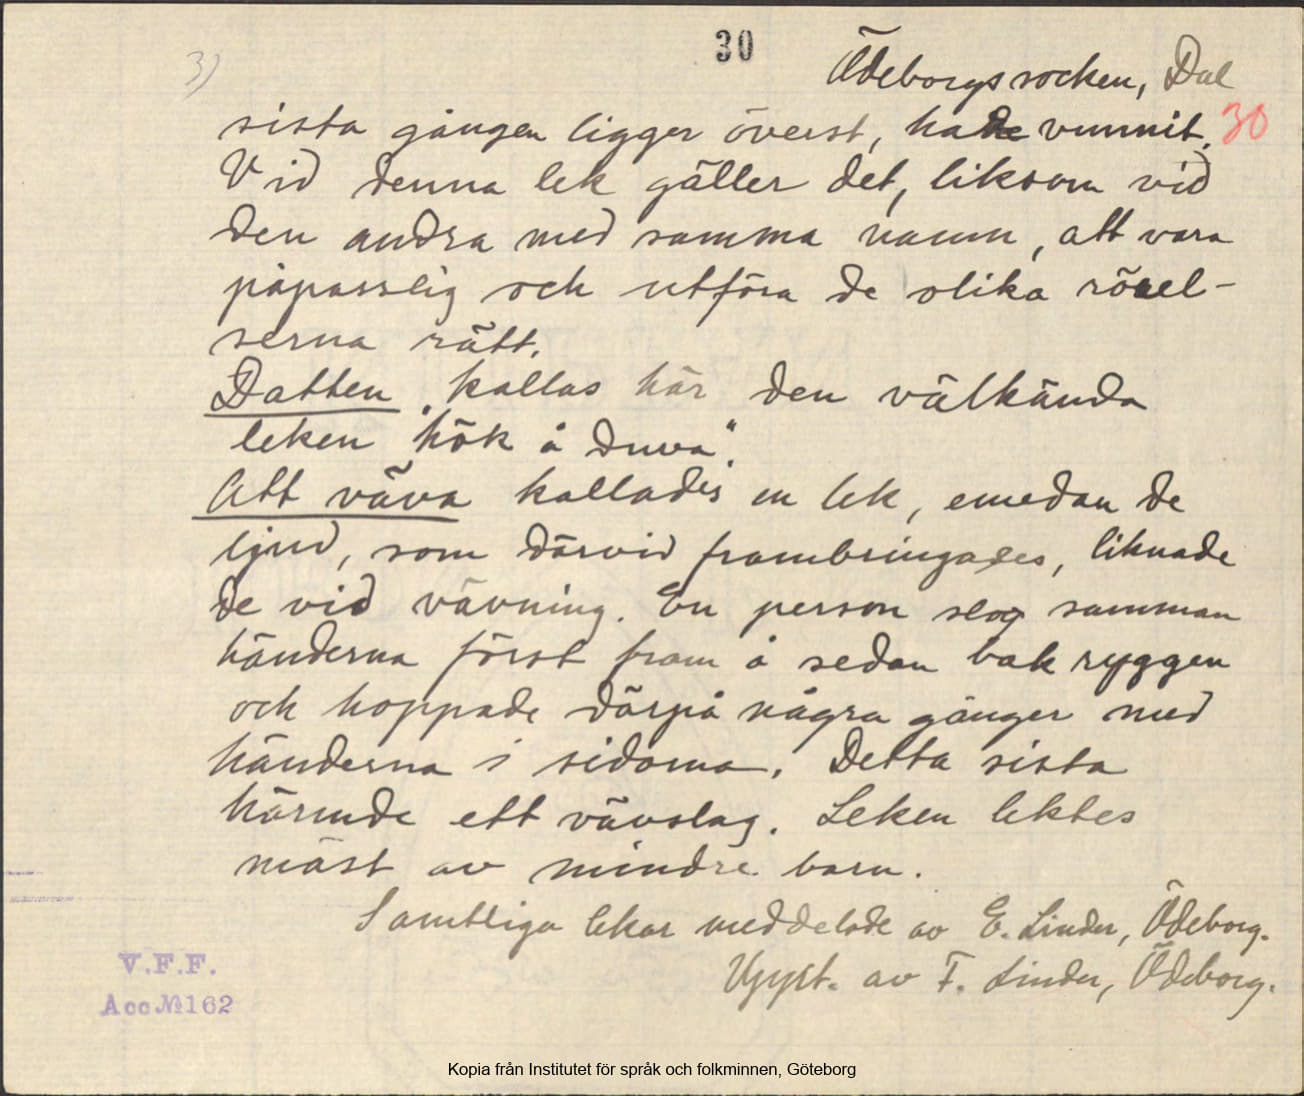 3)
30
Ödeborgs socken, Dal
30
sista gången ligger överst, hade vunnit.
Vid denna lek gäller det, liksom vid
den andra med samma namn, att vara
påpasslig och utföra de olika rörel-
serna rätt.
Datten kallas här den välkända
leken "hök å duva".
Att väva kallades en lek, emedan de
ljud, som därvid frambringades, liknade
de vid vävning. En person slog samman
händerna först fram å sedan bak ryggen
och hoppade därpå några gånger med
händerna i sidorna. Detta sista
härmde ett vävslag. Leken lektes
mäst av mindre barn.
Samtliga lekar meddelade av E. Linder, Ödeborg.
Uppt. av F. Linder, Ödeborg.
V.F.F.
Acc № 162
Kopia från Institutet för språk och folkminnen, Göteborg